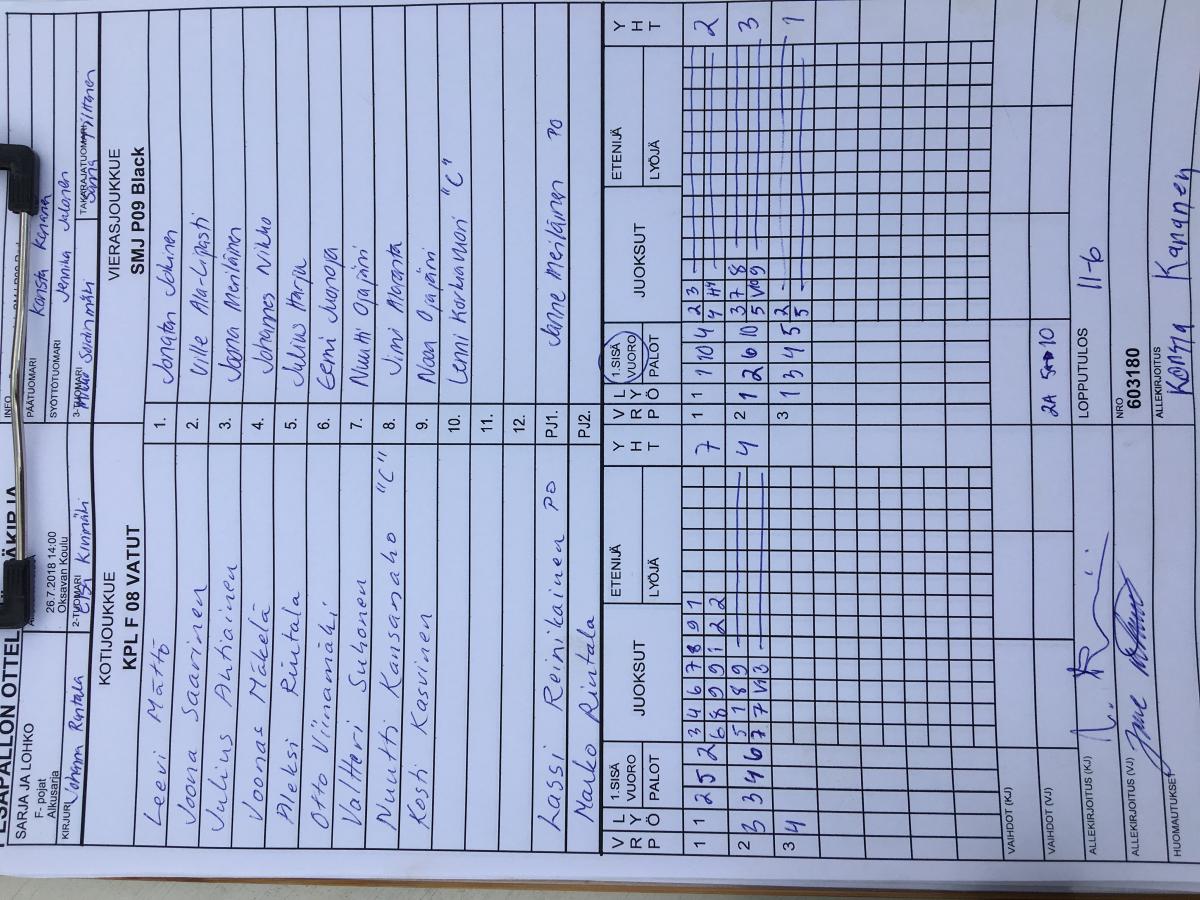 PESÄPALLON OTTEL
SARJA JA LOHKO
F- pojat
Alkusarja
26.7.2018 14:00
Oksavan Koulu
INFO
KIRJURI
2-TUOMARI
PÄÄTUOMARI
SYÖTTÖTUOMARI
Jennika Jalonen
3-TUOMARI
TAKARAJATUOMARI
KOTIJOUKKUE
KPL F 08 VATUT
VIERASJOUKKUE
SMJ P09 Black
Leevi Mättö 1. Jonatan Jokinen
Joona Saarinen 2. Ville Ala-Lipasti
Julius Ahtiainen 3. Joona Meriläinen
Joonas Mäkelä 4. Johannes Nikku
Aleksi Rintala 5. Julius Harju
Otto Viinamäki 6. Eemi Juonoja
Valtteri Suhonen 7. Nuutti Ojajärvi
Nuutti Kansanaho "C" 8. Jimi Alaranta
Kosti Kasvinen 9. Noon Ojajärvi
10. Lenni Korkiavuori "C"
11.
12.
Lassi Reinikainen PO PJ1. Janne Meriläinen PO
Marko Rintala PJ2.
V R P L Y Ö 1.SISÄ VUORO PALOT JUOKSUT ETENIJÄ LYÖJÄ Y H T V R P L Y Ö 1.SISÄ VUORO PALOT JUOKSUT ETENIJÄ LYÖJÄ Y H T
1 1 2 5 2 3 4 6 7 8 9 1 7 1 1 1 10 4 2 3 2
6 8 9 9 1 2 2
2 3 3 4 6 5 1 8 9 4 2 1 2 6 10 3 7 8 3
7 7
3 4 3 1 3 4 5 2 1
5
VAIHDOT (KJ)
VAIHDOT (VJ) 2A 10
ALLEKIRJOITUS (KJ) LOPPUTULOS 11-6
ALLEKIRJOITUS (VJ) NRO
603180
HUOMAUTUKSET ALLEKIRJOITUS
Kananen